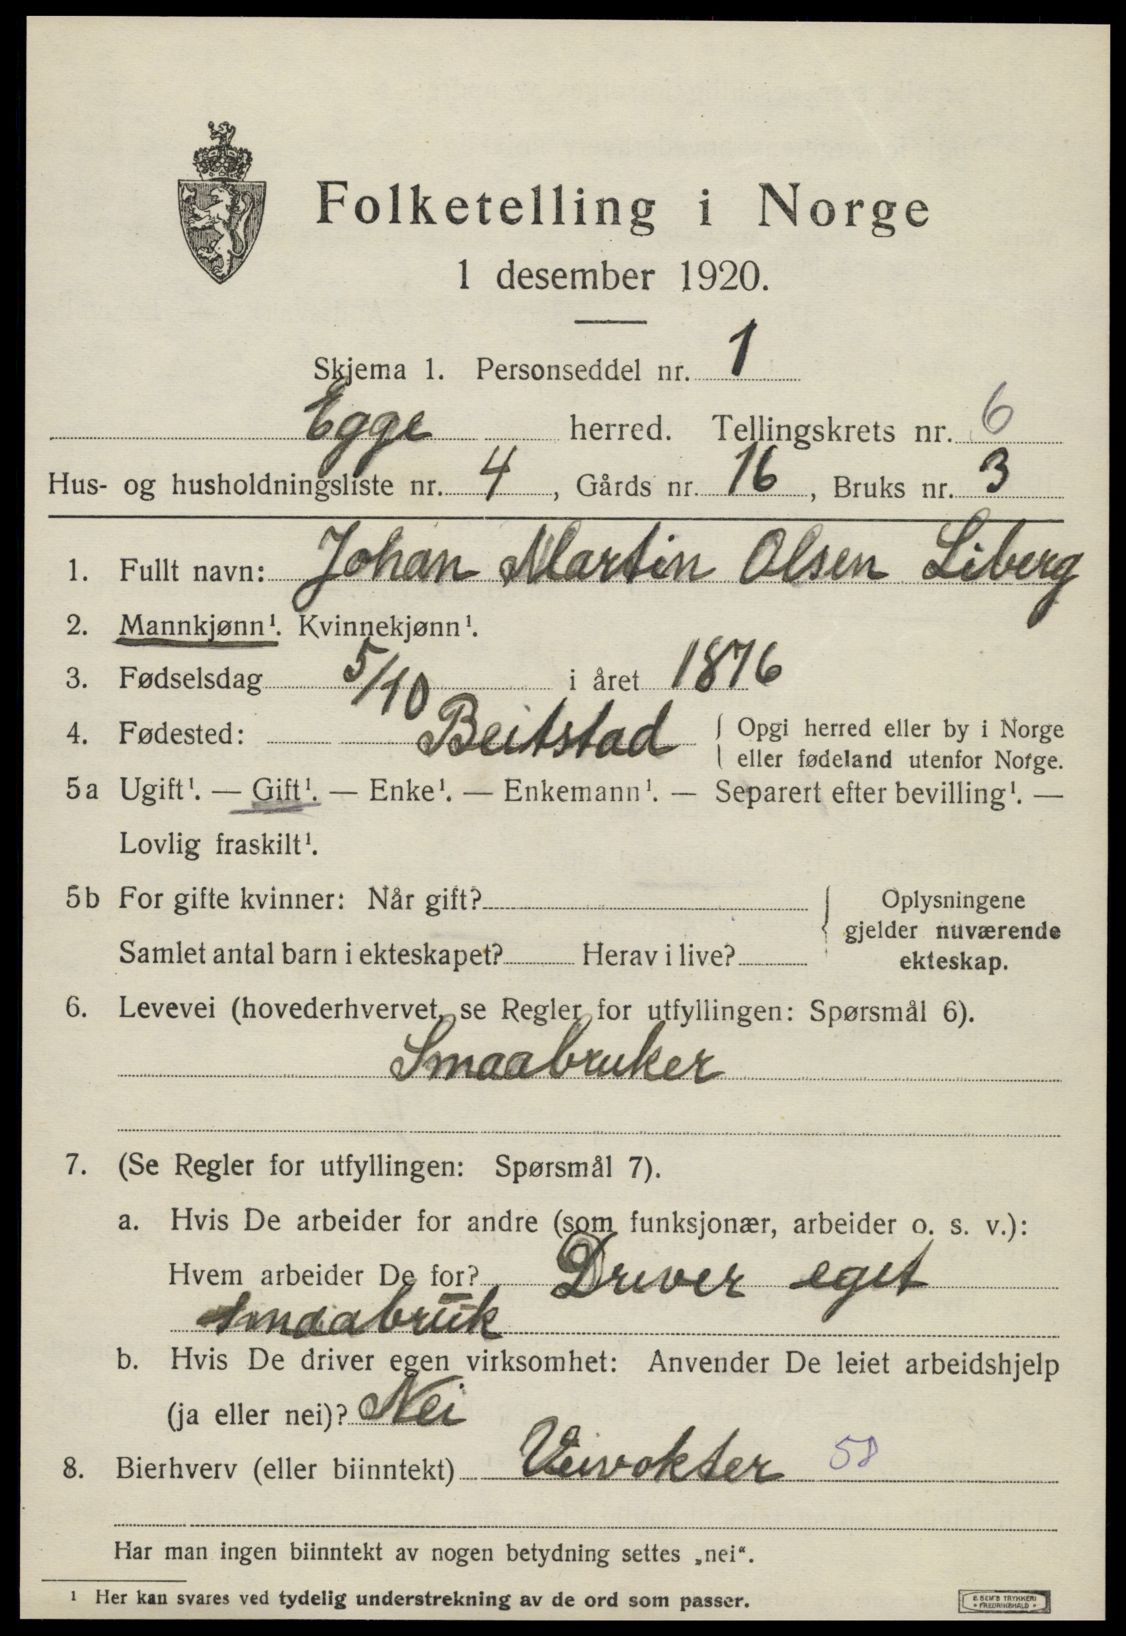 Folketelling i Norge
1 desember 1920.
Skjema 1. Personseddel nr. 1
Egge herred. Tellingskrets nr. 6
Hus- og husholdningsliste nr. 4, Gårds nr. 16, Bruks nr. 3
1. Fullt navn: Johan Martin Olsen Liberg
2. Mannkjønn¹. Kvinnekjønn¹.
3. Fødselsdag 5/10 i året 1876
4. Fødested: Beitstad { Opgi herred eller by i Norge
eller fødeland utenfor Norge.
5a Ugift¹. — Gift¹. — Enke¹. — Enkemann¹. — Separert efter bevilling¹. —
Lovlig fraskilt¹.
5b For gifte kvinner: Når gift? { Oplysningene
gjelder nuværende
Samlet antal barn i ekteskapet? Herav i live? ekteskap.
6. Levevei (hovederhvervet, se Regler for utfyllingen: Spørsmål 6).
Smaabruker
7. (Se Regler for utfyllingen: Spørsmål 7).
a. Hvis De arbeider for andre (som funksjonær, arbeider o. s. v.):
Hvem arbeider De for? Driver eget
smaabruk
b. Hvis De driver egen virksomhet: Anvender De leiet arbeidshjelp
(ja eller nei)? Nei
8. Bierhverv (eller biinntekt) Veivokter 58
Har man ingen biinntekt av nogen betydning settes „nei“.
¹ Her kan svares ved tydelig understrekning av de ord som passer.
E SEM'S TRYKKERI
FREDRIKSHALD